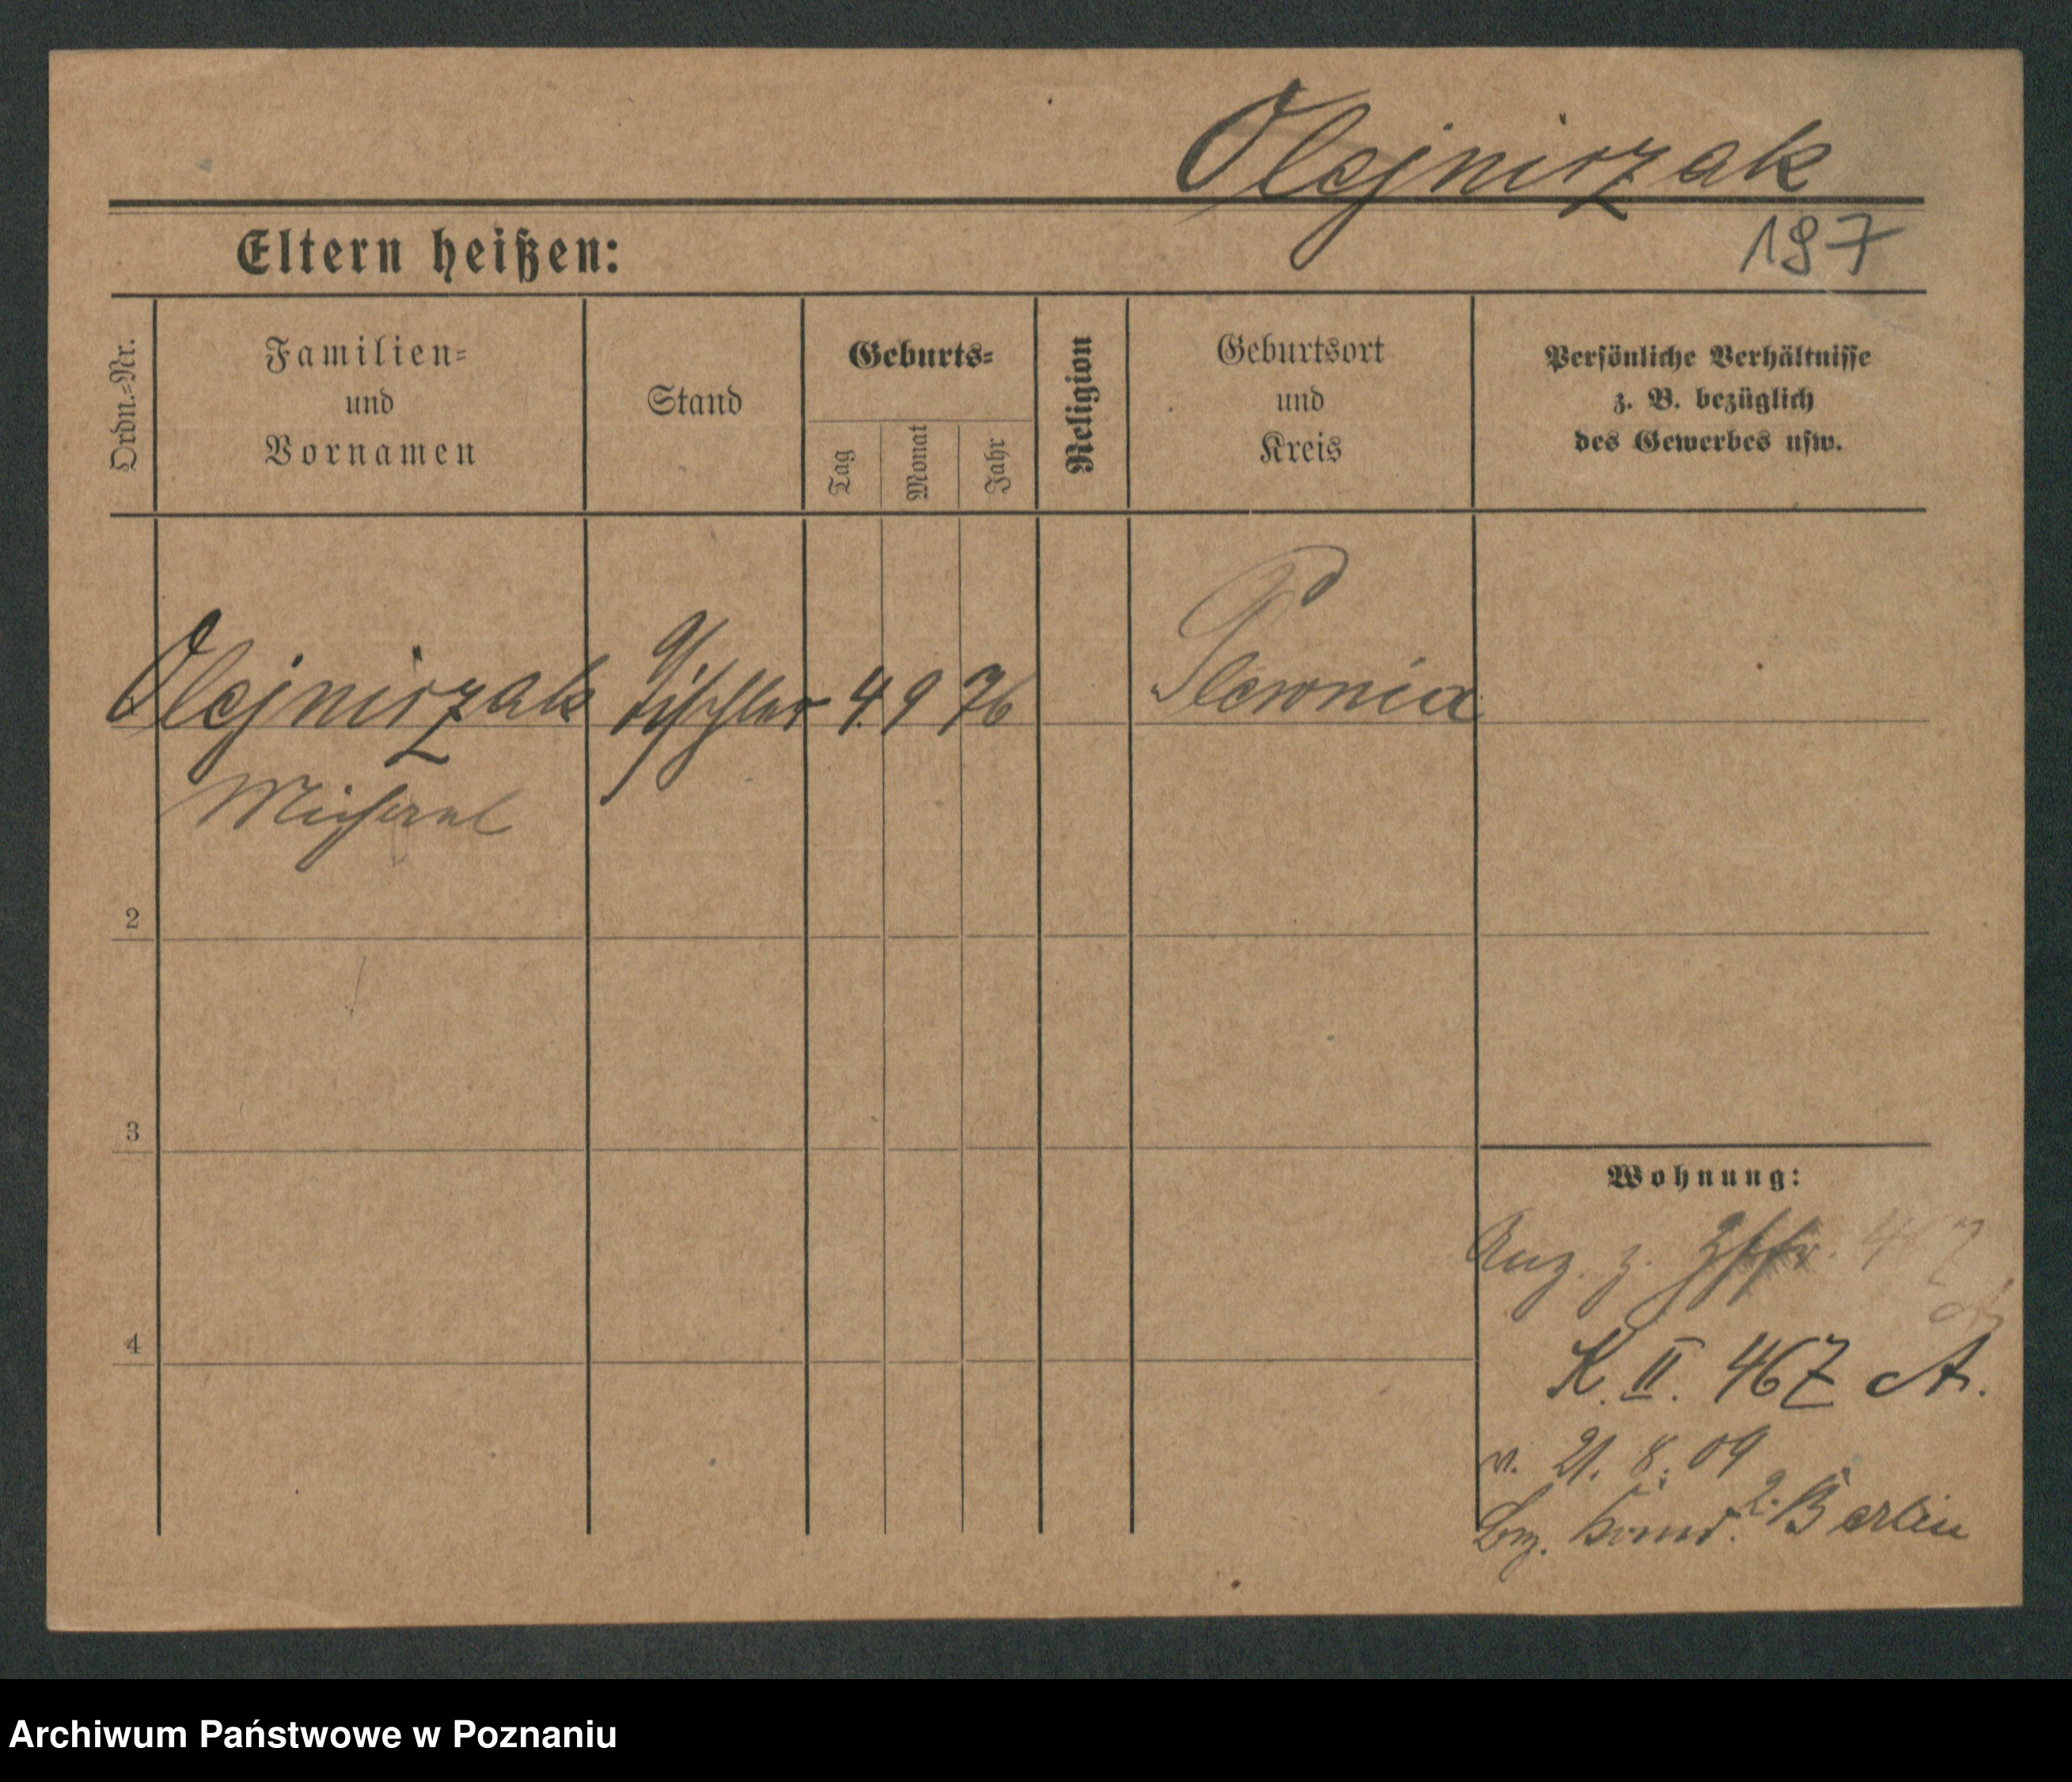 Olejniczak
197
Eltern heißen:
Ordn.=Nr.
Familien=
und
Vornamen
Stand
Geburts=
Tag
Monat
Jahr
Religion
Geburtsort
und
Kreis
Persönliche Verhältnisse
z. B. bezüglich
des Gewerbes usw.
Olejniczak Tischler 4. 9 76 Plewnia
Michael
2
3
4
Wohnung:
Anz. z. 467
K. II. 467 A.
v. 21. 8. 09
Bez. Komd. 2. Berlin
Archiwum Państwowe w Poznaniu